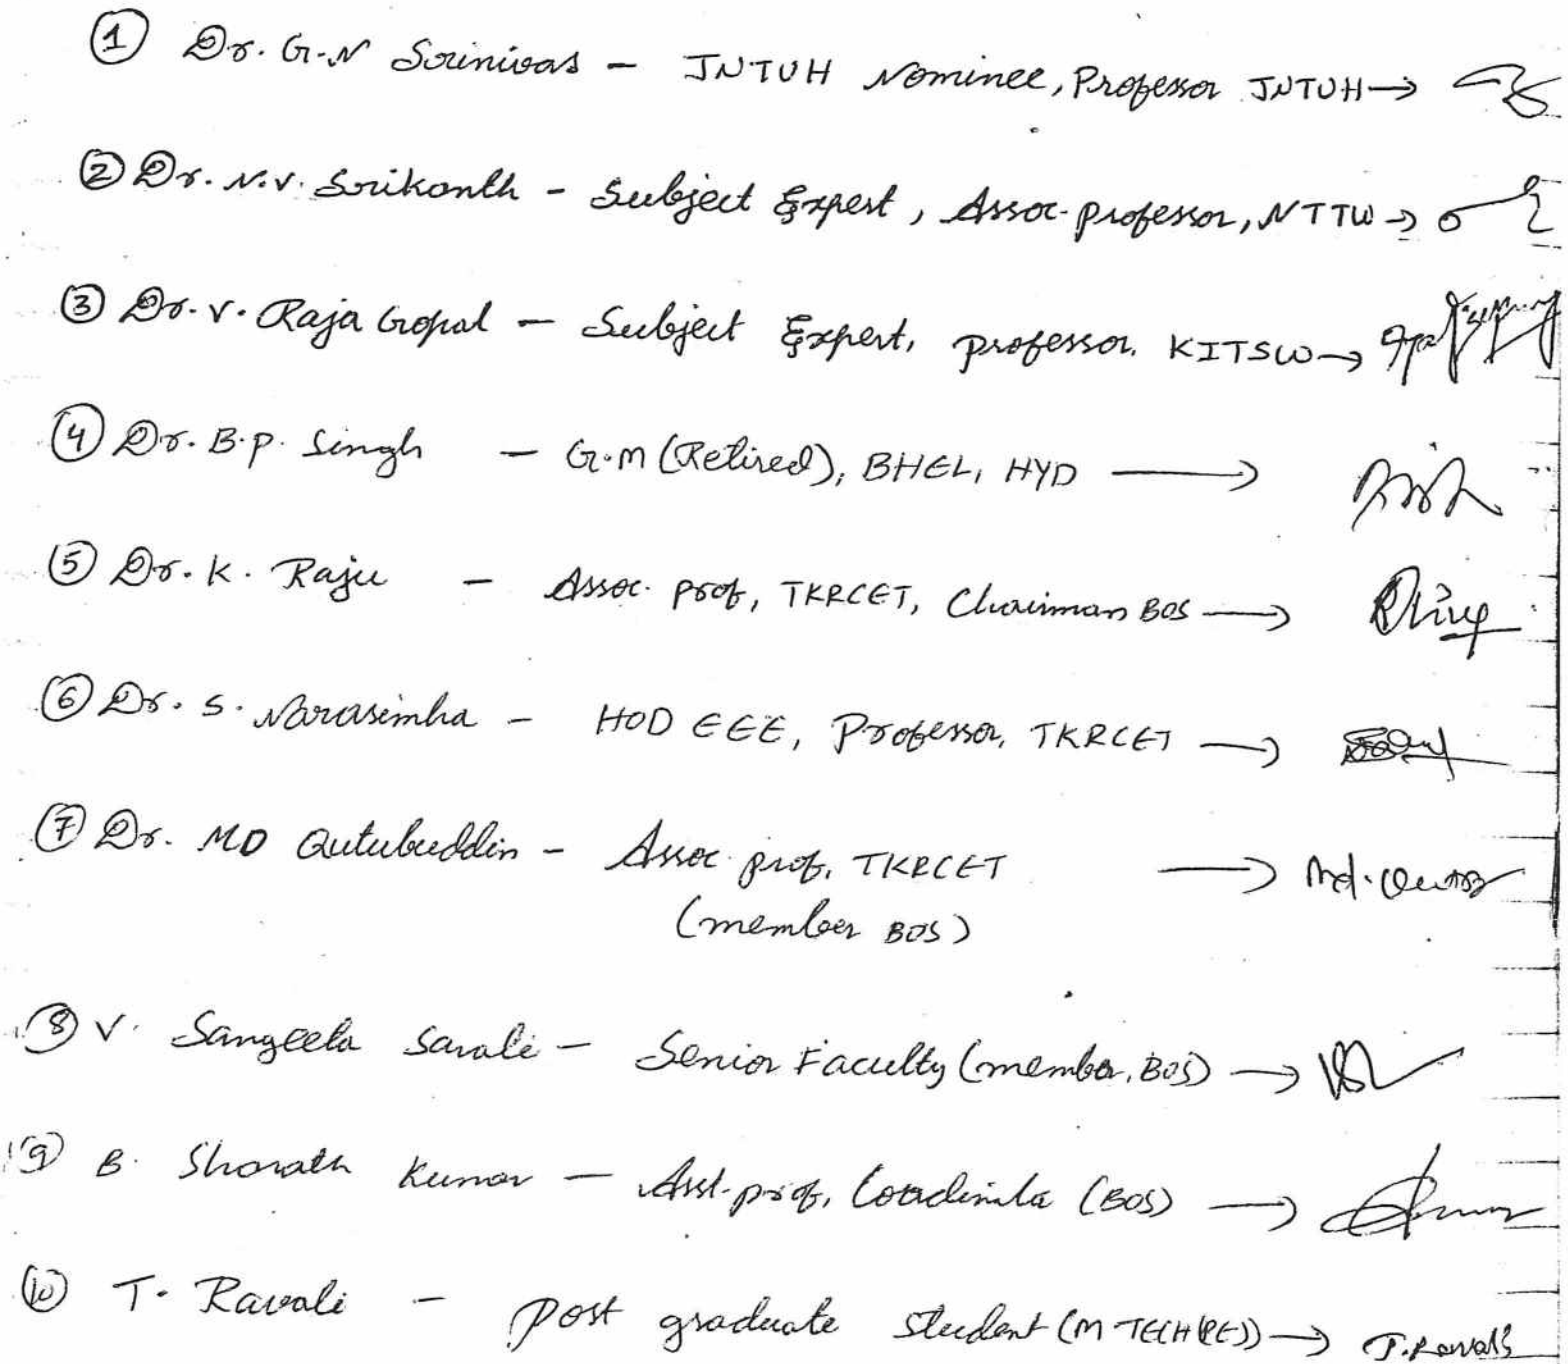 ① Dr. G.N Srinivas - JNTUH Nominee, Professor JNTUH →
② Dr. N.V. Srikanth - Subject Expert, Assoc. professor, NITW →
③ Dr. V. Raja Gopal - Subject Expert, professor. KITSW →
④ Dr. B.P. Singh - G.M (Retired), BHEL, HYD →
⑤ Dr. K. Raju - Assoc. prof, TKRCET, Chairman BOS →
⑥ Dr. S. Narasimha - HOD EEE, Professor, TKRCET →
⑦ Dr. MD Qutubuddin - Assoc. prof, TKRCET → Md.
(member BOS)
⑧ V. Sangeeta Sarali - Senior Faculty (member, BOS) →
⑨ B. Sharath Kumar - Asst. prof, (BOS) →
⑩ T. Ravali - post graduate student (M TECH(PE)) → T. Ravali